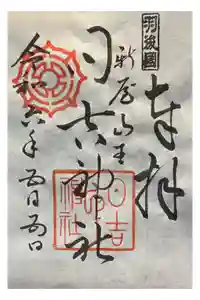 羽後國
奉拝
新屋山王
日吉神社
日吉
神社
令和六年